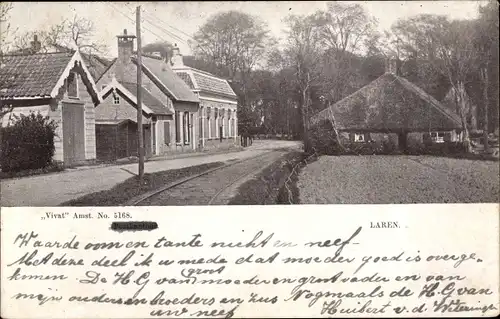 „Vivat” Amst. No. 5168.
LAREN.
Waarde oom en tante nicht en neef
Met deze deel ik u mede dat moeder goed is overge-
komen De H.G. van moeder en grootvader en van
groot
mijn ouders en broeders en zus Nogmaals de H.G. van
uw neef Huibert v.d.